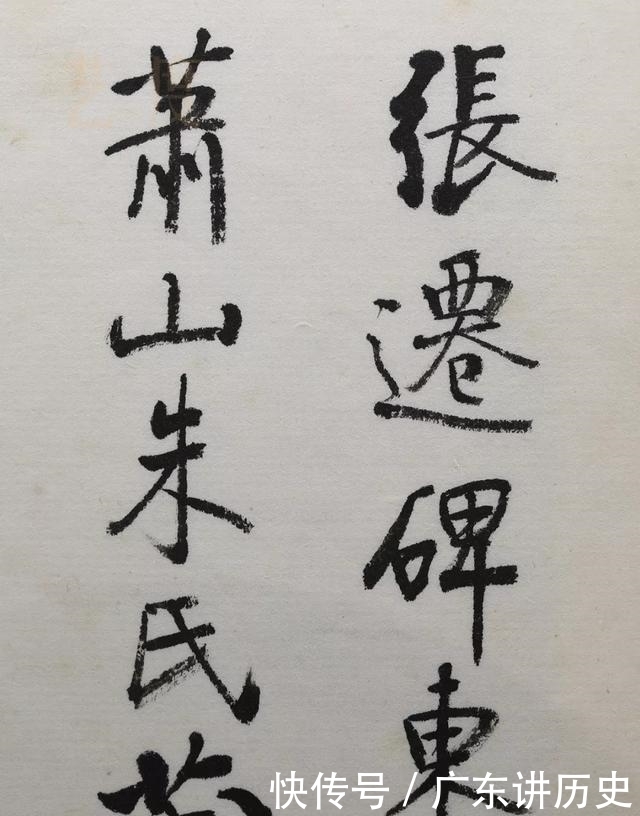 張遷碑東
蕭山朱氏
快传号 / 广东讲历史